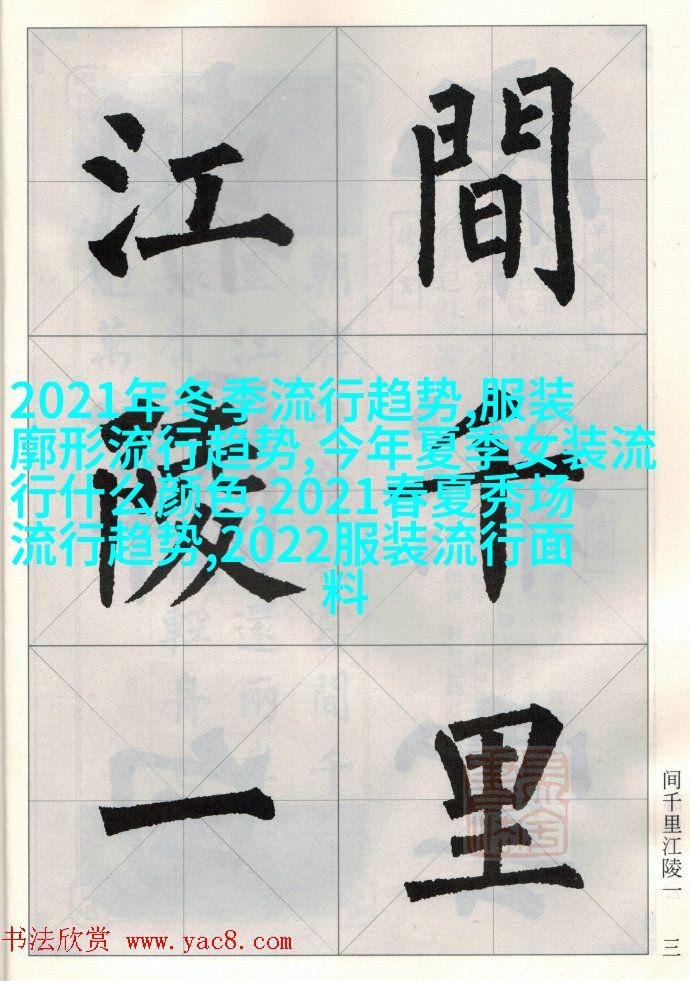 間千里
江陵一
2021年冬季流行趋势,服装
廓形流行趋势,今年夏季女装流
行什么颜色,2021春夏秀场
流行趋势,2022服装流行面
料
间千里江陵一
三
书法欣赏 www.yac8.com